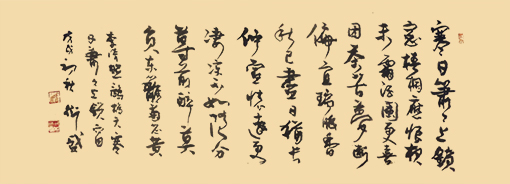 寒日蕭蕭上鎖
窗梧桐應恨夜
來霜酒闌更喜
團茶苦夢斷
偏宜瑞腦香
秋已盡日猶長
仲宣懷遠更
凄涼不如隨分
尊前醉莫
負東籬菊蕊黃
李清照鷓鴣天寒
日蕭蕭上鎖窗
戊戌初秋